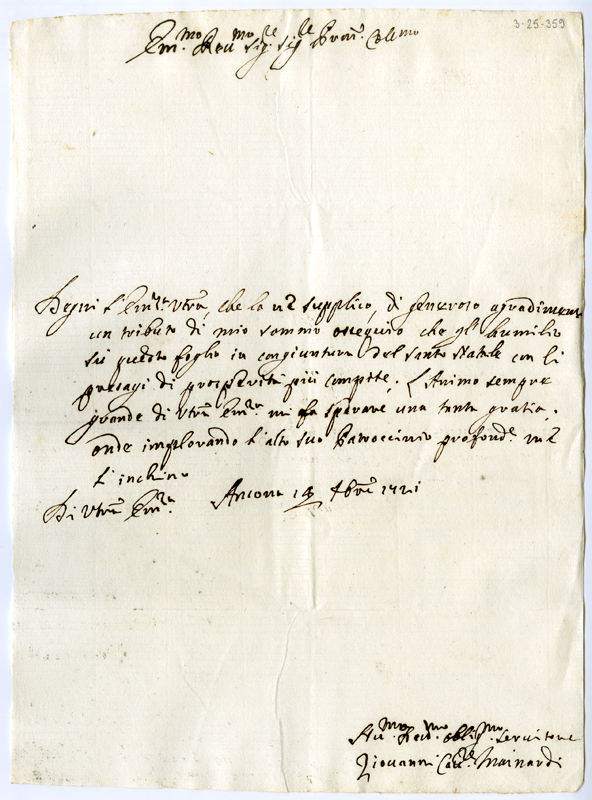 3-25-359
Em.mo Rev.mo Sig.re Sig.re Pron. Col.mo
Degni l'Em.za Vtra, che la ne supplico, di generoso agradimento
un tributo di mio sommo ossequio che gl'humilio
su questo foglio in congiuntura del Santo Natale con li
presagi di prosperità più compite. L'Animo sempre
grande di Vtra Em.za mi fa sperare una tanta gratia,
onde implorando l'alto suo Patrocinio profond.e me
l'inchino
Di Vtra Em.za Ancona 14 Xbre 1721
Rev.mo obblig.mo Servitore
Giovanni Mainardi